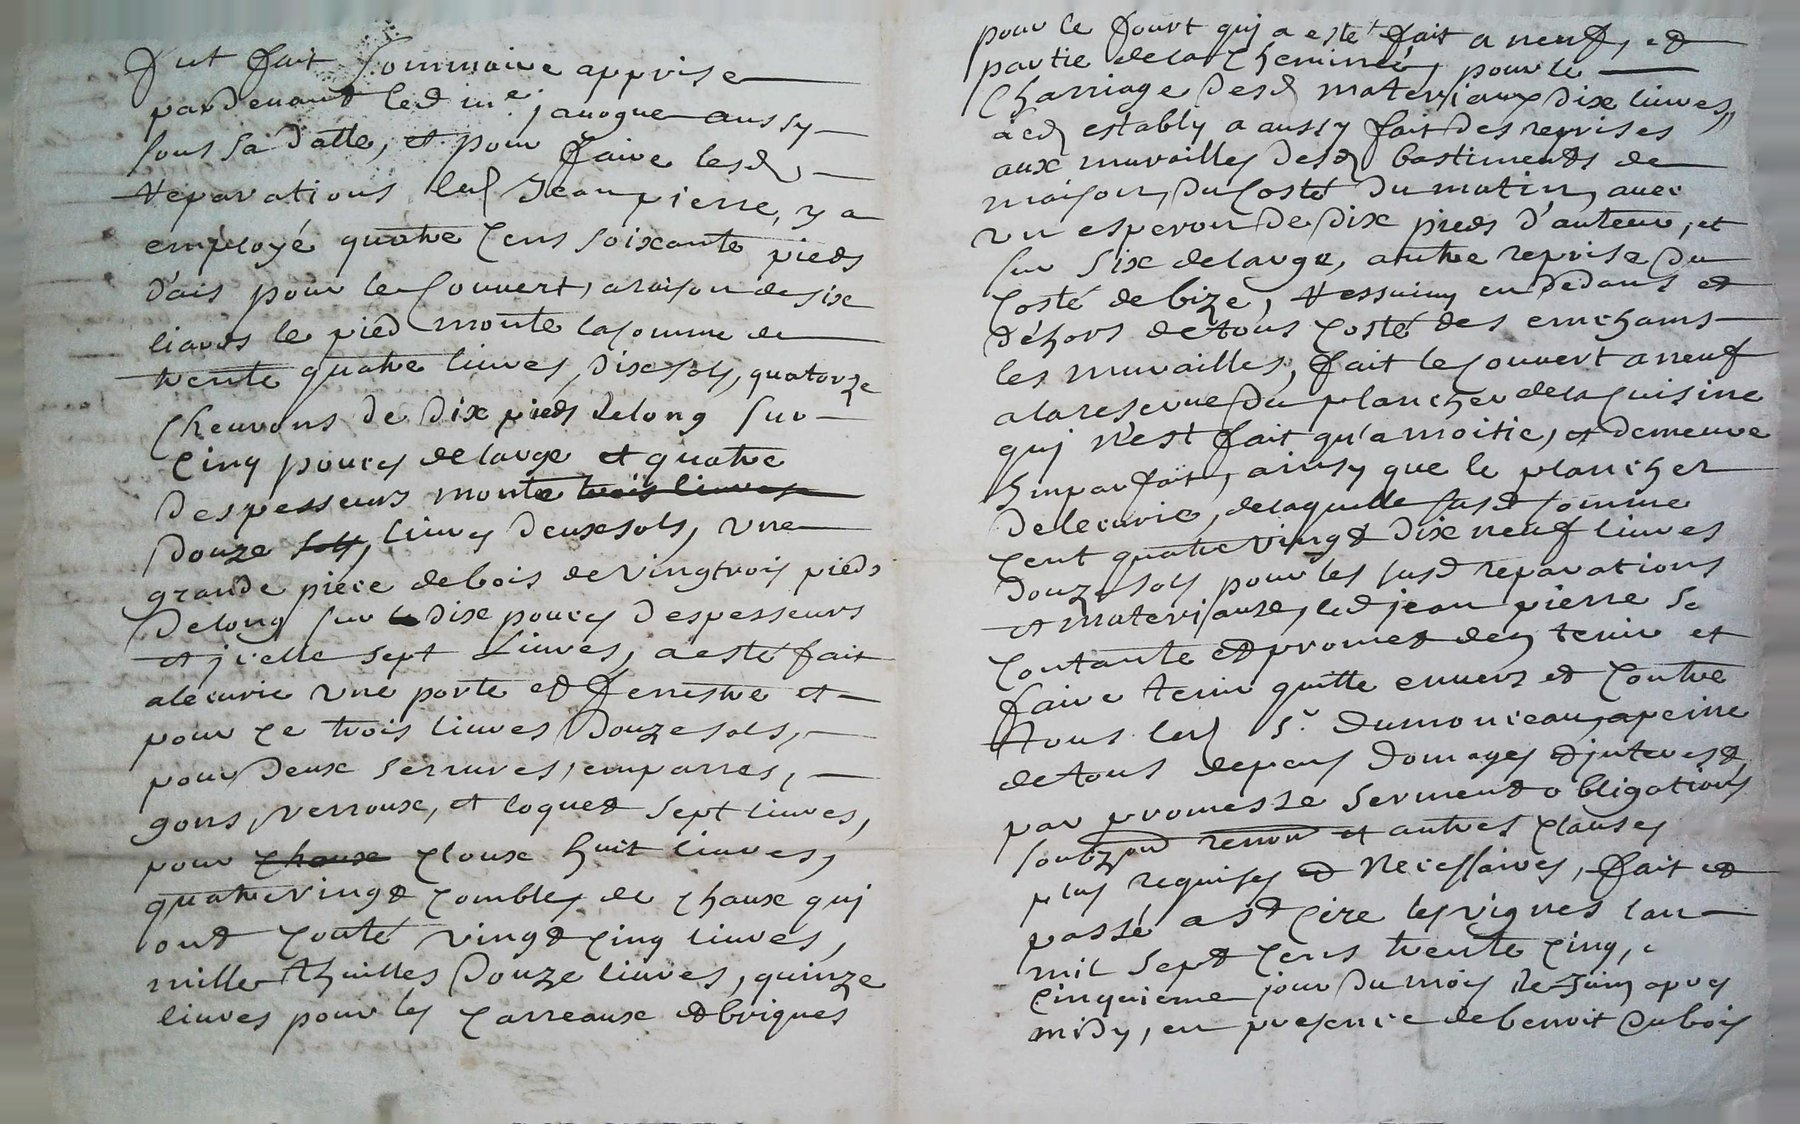 fut fait sommaire apprise
pardevant led me janogue aussy
sous sa datte, et pour faire lesd
reparations led Jean pierre, y a
employé quatre cens soixante pieds
d'ais pour le couvert, a raison de six
liards le pied monte la somme de
trente quatre livres, dix sols, quatorze
chevrons de dix pieds de long sur
cinq pouces de large et quatre
despesseurs monte trois livres
douze sols, livres deux sols, une
grande piece de bois de vingtrois pieds
de long sur dix pouces despesseurs
et jcelle sept livres, a esté fait
alecurie une porte et fenestre et
pour ce trois livres douze sols,
pour deux serrures, emparres,
gons, verroux, et loquet sept livres,
pour chaux cloux huit livres,
quatre vingt combles de chaux quj
ont couté vingt cinq livres,
mille thuilles douze livres, quinze
livres pour les carreaux et briques
pour le fourt quj a esté fait a neuf, et
partie de la cheminée, pour le
charriage desd materjaux dix livres,
aud estably a aussy fait des reprises
aux murailles desd bastiments de
maison, du costé du matin, avec
un esperon de dix pieds d'auteur, et
sur six de large, autre reprise du
costé de bize, ressuivy en dedans et
déhors de tous costé des enchams
les murailles, fait le couvert a neuf
a la reserve du plancher de la cuisine
quj n'est fait qu'a moitie, et demeure
himparfait, ainsy que le plancher
de lecurie, de laquelle susd somme
cent quatre vingt dix neuf livres
douze sols pour les susd reparations
et materjaux, led jean pierre se
contante et promet den tenir et
faire tenir quitte envers et contre
tous led Sr. dumonceau, a peine
de tous depens domages et jnterest,
par promesse serment obligations
soubz ond renon et autres clauses
plus requises et necessaires, fait et
passé a st cire les vignes lan
mil sept cens trente cinq,
cinquieme jour du mois de Juin apres
midy, en presence de benoit dubois